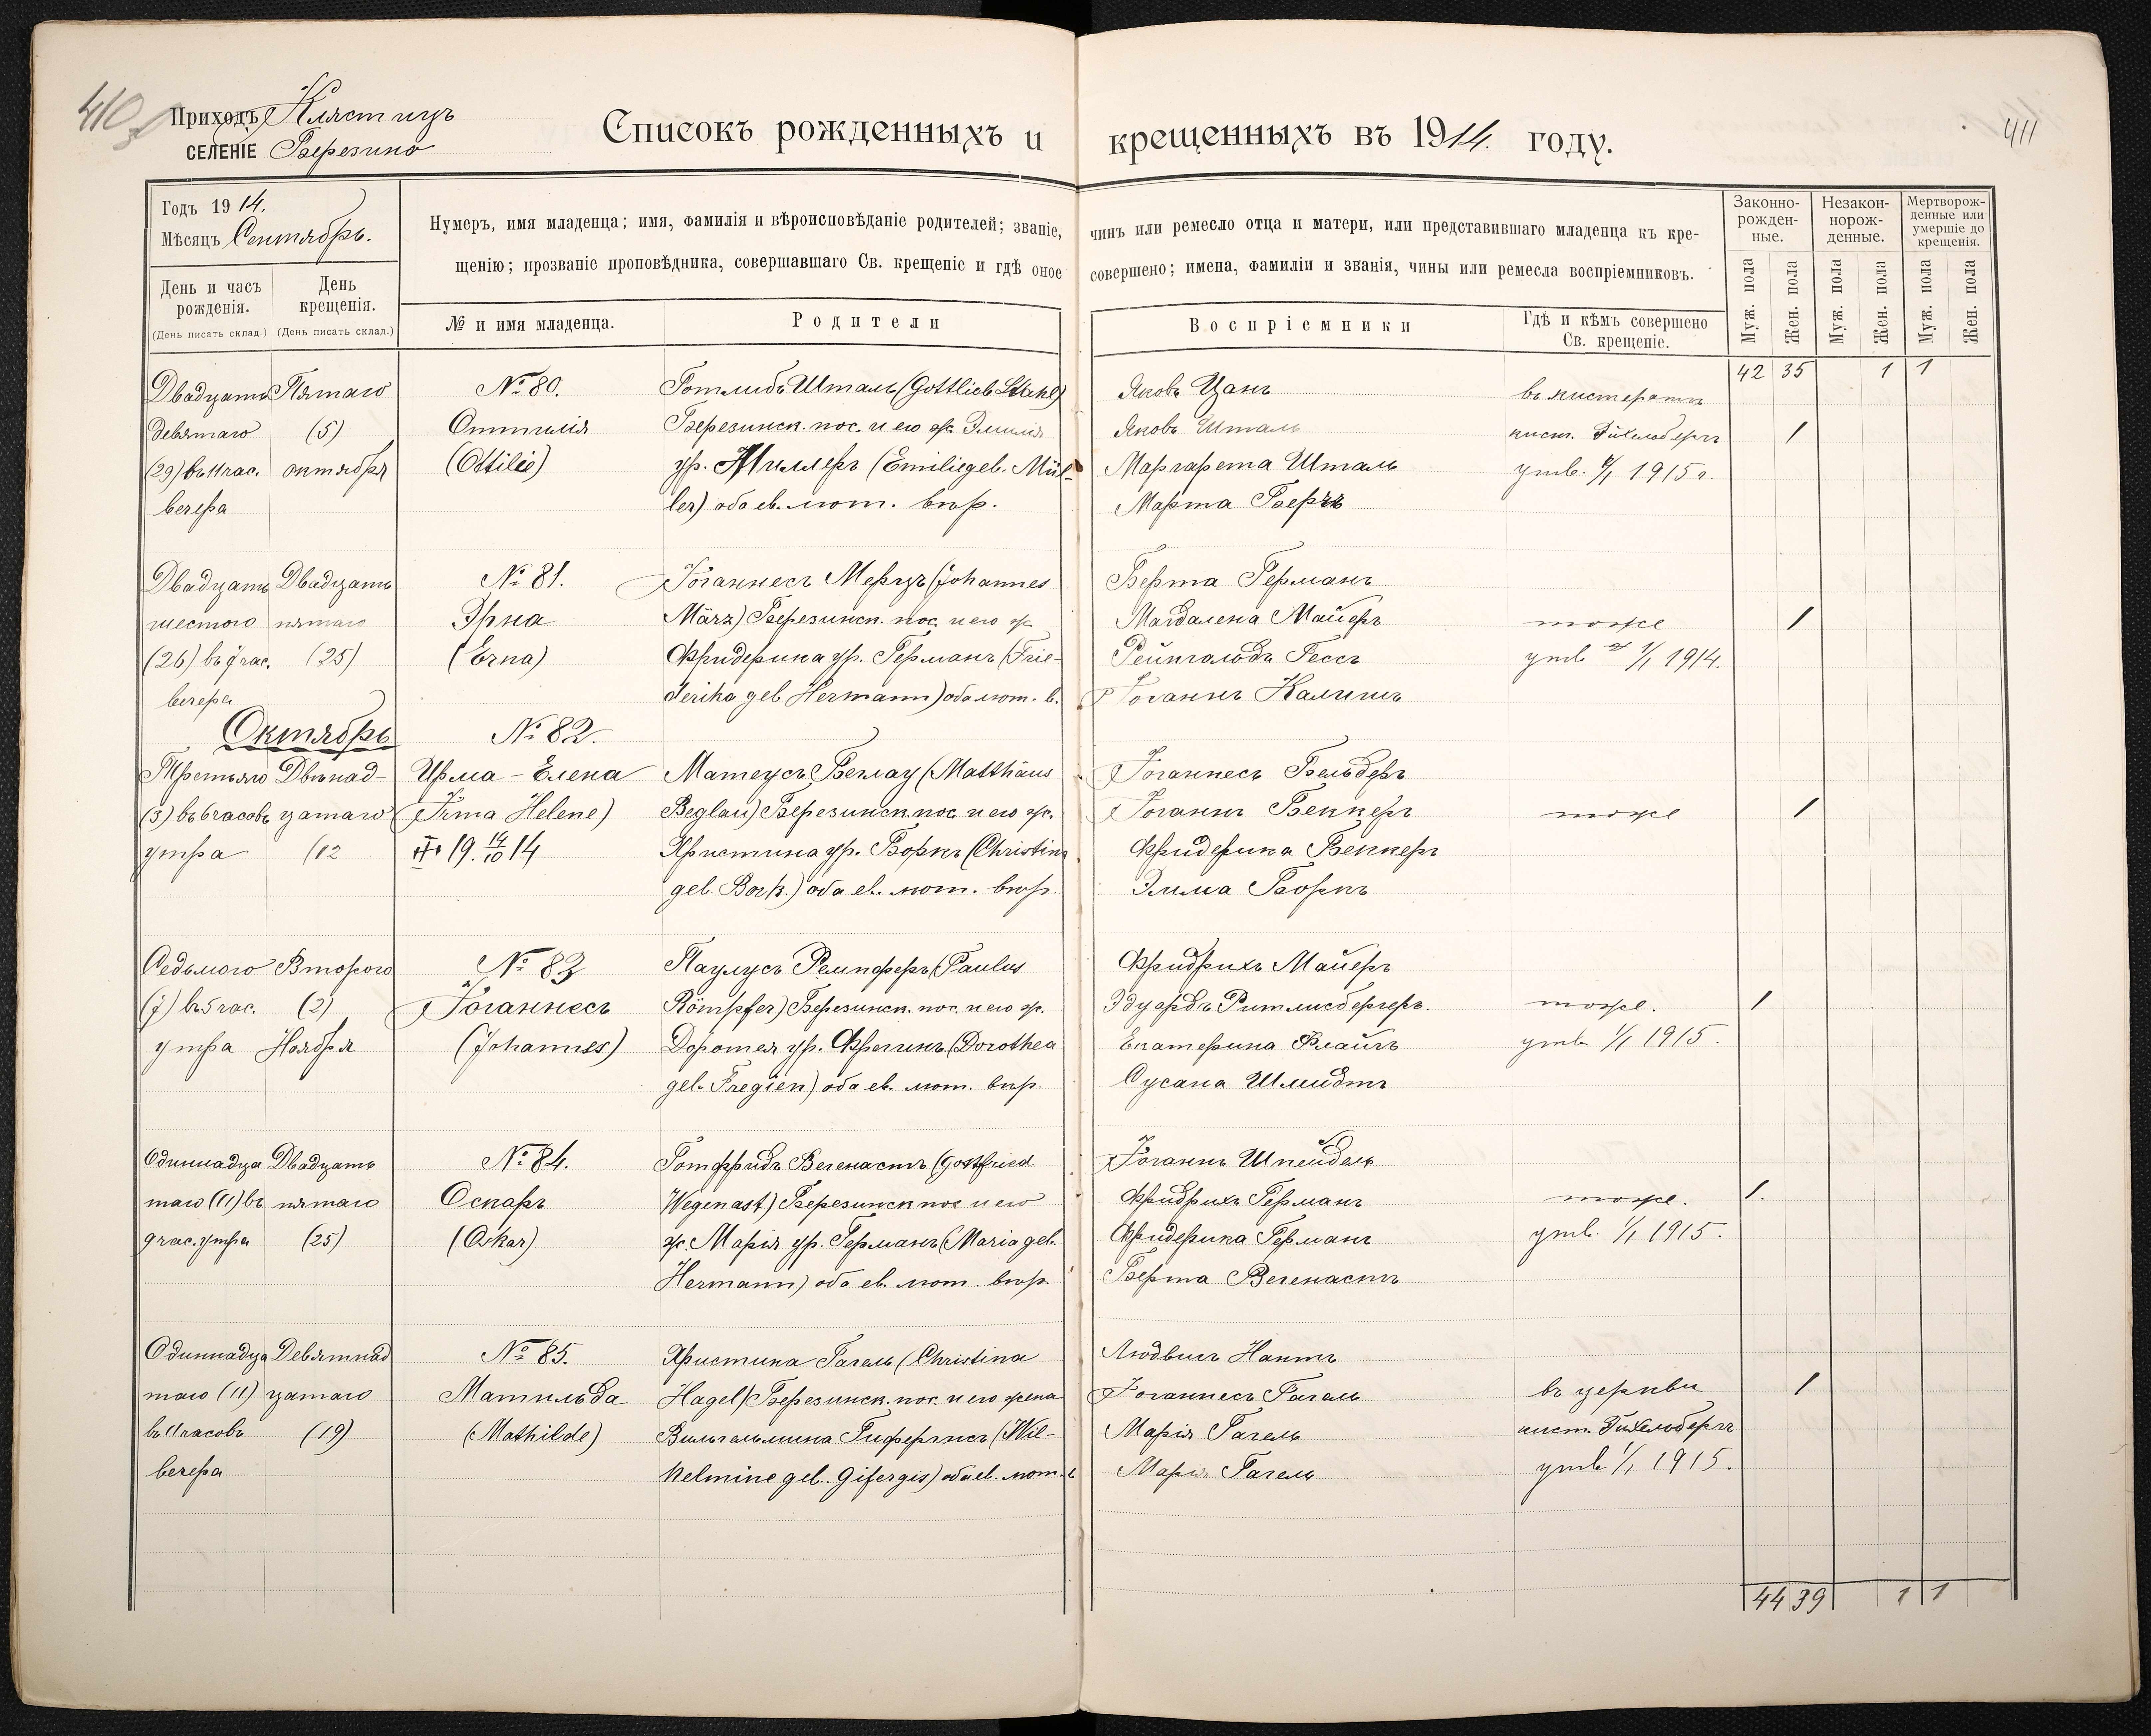 410
Приходъ Клястицъ
СЕЛЕНІЕ Березино
Списокъ рожденныхъ и крещенныхъ въ 1914. году.
411
Годъ 1914.
Мѣсяцъ Сентябрь.
День и часъ рожденія.
(День писать склад.)
День крещенія.
(День писать склад.)
Нумеръ, имя младенца; имя, фамилія и вѣроисповѣданіе родителей; званіе, чинъ или ремесло отца и матери, или представившаго младенца къ кре-
щенію; прозваніе проповѣдника, совершавшаго Св. крещеніе и гдѣ оное совершено; имена, фамиліи и званія, чины или ремесла воспріемниковъ.
№ и имя младенца.
Родители
Воспріемники
Гдѣ и кѣмъ совершено
Св. крещеніе.
Законно-
рожден-
ные.
Незакон-
норож-
денные.
Мертворож-
денные или
умершіе до
крещенія.
Муж. пола
Жен. пола
Муж. пола
Жен. пола
Муж. пола
Жен. пола
42 35 1 1
Двадцать
девятаго
(29) въ 11 час.
вечера
Пятаго
(5)
октября
№ 80.
Оттилія
(Ottilie)
Готлибъ Шталь (Gottlieb Stahl)
Березинск. пос. и его ж. Эмилія
ур. Миллеръ (Emilie geb. Mül-
ler) оба ев. лют. вѣр.
Яковъ Цанъ
Яковъ Шталь
Маргарета Шталь
Марта Герцъ
въ кистератѣ
кист. Эйхельбергъ
утв. 1/1 1915 г.
1
Двадцать
шестого
(26) въ 9 час.
вечера
Двадцать
пятаго
(25)
№ 81.
Эрна
(Erna)
Іоганнесъ Мерцъ (Johannes
März) Березинск. пос. и его ж.
Фридерика ур. Германъ (Frie-
derika geb Hermann) оба лют. в.
Берта Германъ
Магдалена Майеръ
Рейнгольдъ Гессъ
Іоганнъ Калишъ
тоже
утв 1/1 1914.
1
Октябрь
Третьяго
(3) въ 6 часовъ
утра
Двѣнад-
цатаго
(12
№ 82.
Ирма - Елена
(Irma Helene)
19. 14/10 14
Матеусъ Беглау (Matthäus
Beglau) Березинск. пос. и его ж.
Христина ур. Боркъ (Christina
geb. Bork.) оба ев. лют. вѣр.
Іоганнесъ Бельдеръ
Іоганнъ Беккеръ
Фридерика Беккеръ
Элма Боркъ
тоже
1
Седьмого
(7) въ 5 час.
утра
Второго
(2)
Ноября
№ 83
Іоганнесъ
(Johannes)
Паулусъ Ремпферъ (Paulus
Römpfer) Березинск. пос. и его ж.
Доротея ур. Фрегинъ (Dorothea
geb. Fregien) оба ев. лют. вѣр.
Фридрихъ Майеръ
Эдуардъ Ритлисбергеръ.
Екатерина Флайгъ
Сусана Шмидтъ
тоже.
утв 1/1 1915.
1
Одиннадца
таго (11) въ
9 час. утра
Двадцать
пятаго
(25)
№ 84.
Оскаръ
(Oskar)
Готфридъ Вегенастъ (Gottfried
Wegenast) Березинск пос и его
ж. Марія ур. Германъ (Maria geb.
Hermann) оба ев. лют. вѣр.
Іоганнъ Шпейдель
Фридрихъ Германъ
Фридерика Германъ
Берта Вегенастъ
тоже.
утв. 1/1 1915.
1.
Одиннадца
таго (11)
въ 11 часовъ
вечера
Девятнад
цатаго
(19)
№ 85.
Матильда
(Mathilde)
Христина Гагель (Christina
Hagel) Березинск. пос. и его жена
Вильгельмина Гифергисъ (Wil-
helmine geb. Gifergis) оба ев. лют. в
Людвигъ Нантъ
Іоганнесъ Гагель
Марія Гагель
Марія Гагель
въ церкви
кист. Эйхельбергъ
утв 1/1 1915.
1
44 39 1 1